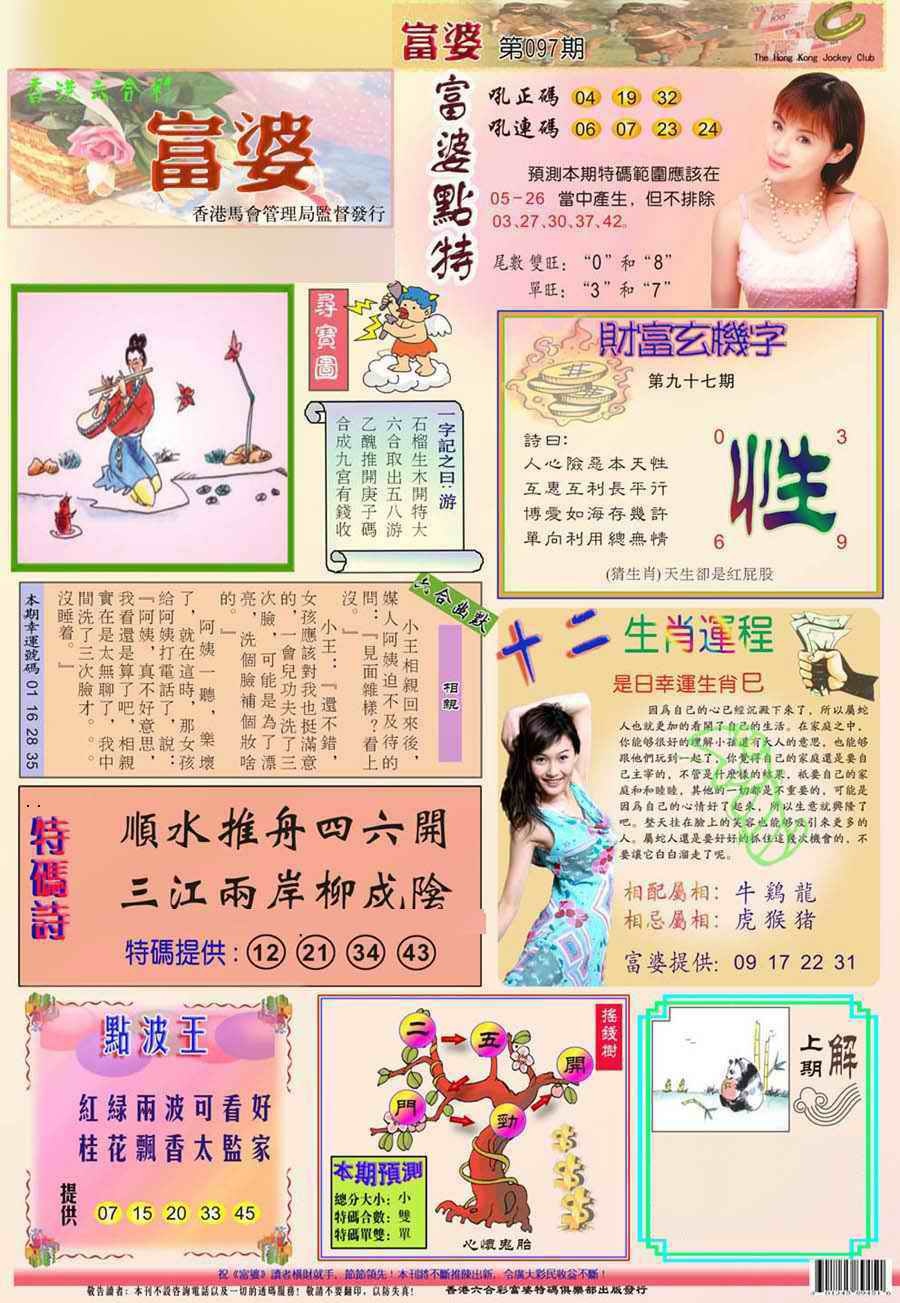 富婆 第097期
The Hong Kong Jockey Club
香港六合彩
富婆
香港馬會管理局監督發行
富婆點特
吼正碼 04 19 32
吼連碼 06 07 23 24
預測本期特碼範圍應該在
05-26 當中產生，但不排除
03、27、30、37、42。
尾數雙旺：“0”和“8”
單旺：“3”和“7”
尋寶圖
一字記之曰：游
石榴生木開特大
六合取出五八游
乙醜推開庚子碼
合成九宮有錢收
財富玄機字
第九十七期
詩曰：
人心險惡本天性
互惠互利長平行
博愛如海存幾許
單向利用總無情
0 3
性
6 9
(猜生肖)天生卻是紅屁股
六合幽默
相親
小王相親回來後，
媒人阿姨迫不及待的
問：『見面雜樣？看上
沒。』
小王：『還不錯，
女孩應該對我也挺滿意
的，一會兒功夫洗了三
次臉，可能是為了漂
亮，洗個臉補個妝啥
的。』
阿姨一聽，樂壞
了，就在這時，那女孩
給阿姨打電話了，說：
『阿姨，真不好意思，
我看還是算了吧，相親
實在是太無聊了，我中
間洗了三次臉才。。。
沒睡着。』
本期幸運號碼 01 16 28 35
十二生肖運程
是日幸運生肖巳
因爲自己的心已經沉澱下來了，所以屬蛇
人也就更加的看開了自己的生活。在家庭之中，
你能够很好的理解小孩還有大人的意思，也能够
跟他們玩到一起了，你覺得自己的家庭還是要自
己主宰的，不管是什麼樣的結果，祇要自己的家
庭和和睦睦，其他的一切都是不重要的，可能是
因爲自己的心情好了起來，所以生意就興隆了
吧。整天挂在臉上的笑容也能够吸引來更多的
人。屬蛇人還是要好好的抓住這幾次機會的，不
要讓它白白溜走了呢。
相配屬相：牛 鷄 龍
相忌屬相：虎 猴 猪
富婆提供：09 17 22 31
特碼詩
順水推舟四六開
三江兩岸柳成陰
特碼提供：12 21 34 43
點波王
紅緑兩波可看好
桂花飄香太監家
提供 07 15 20 33 45
搖錢樹
二 五
開
門 勁
本期預測
總分大小：小
特碼合數：雙
特碼單雙：單
心懷鬼胎
上期解
祝《富婆》讀者橫財就手，節節領先！本刊將不斷推陳出新，令廣大彩民收益不斷！
敬告讀者：本刊不設咨詢電話以及一切的透碼服務！敬請不要翻印，以防失真！ 香港六合彩富婆特碼俱樂部出版發行